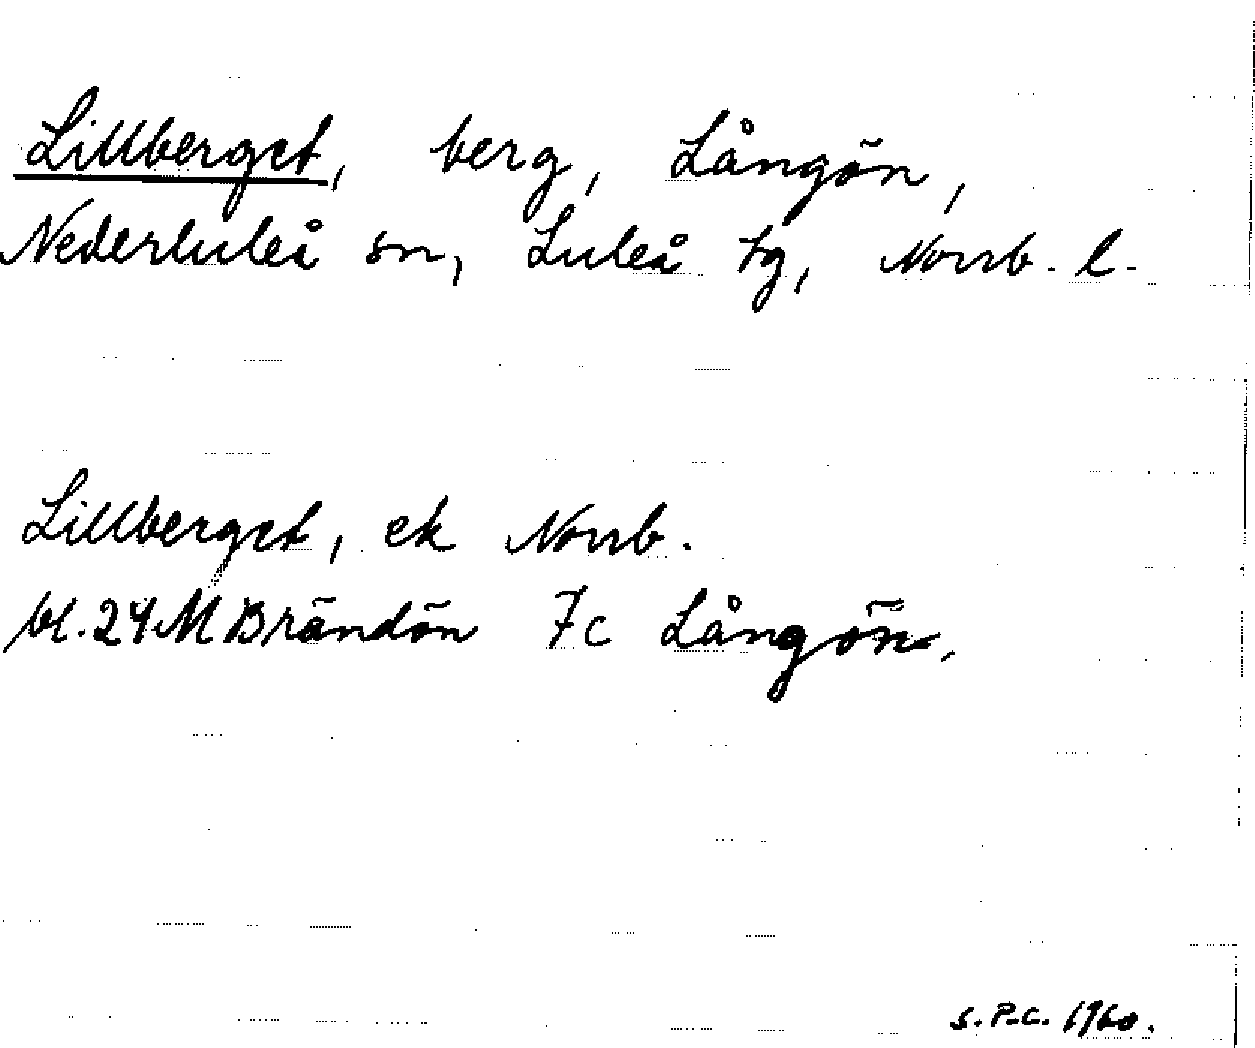 Lillberget, berg, Långön,
Nederluleå sn, Luleå tg, Norrb. l.
Lillberget, ek Norrb.
bl. 24M Brändön 7c Långön.
S.P.C. 1960.